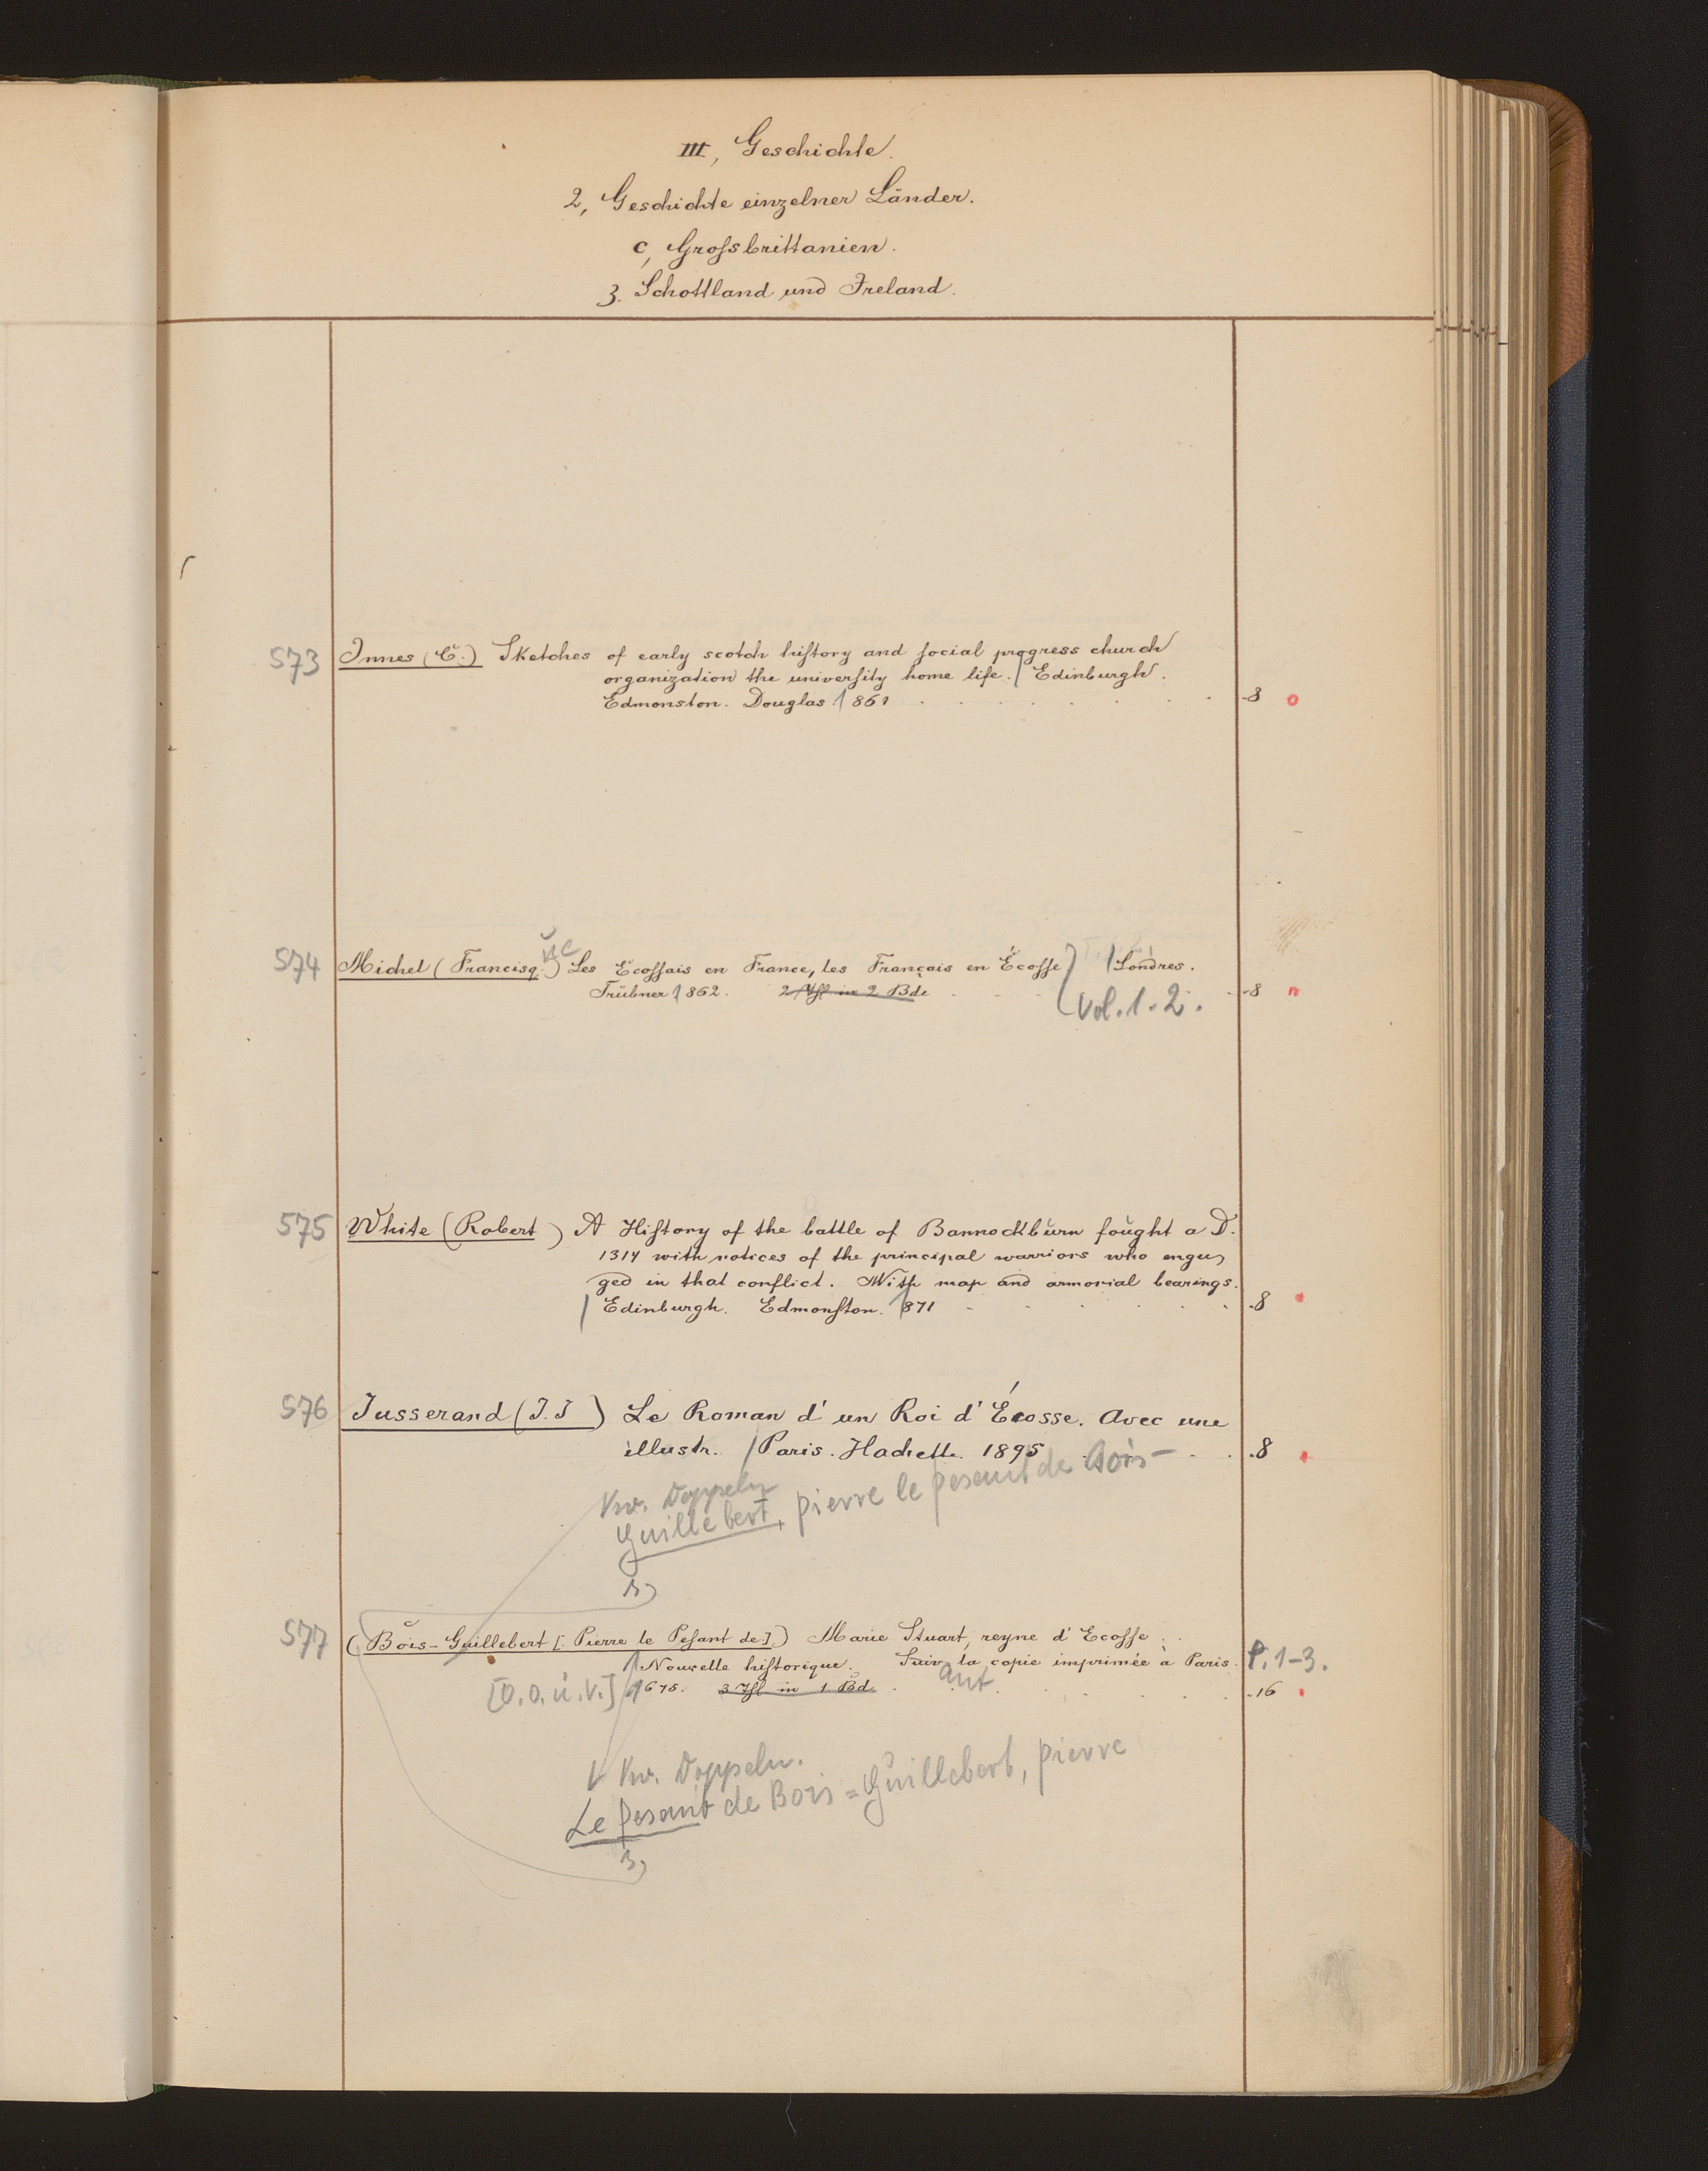 III, Geschichte.
2, Geschichte einzelner Länder.
c, Grofsbrittanien.
3. Schottland und Ireland.
573 Innes (C.) Sketches of early scotch history and social progress church
organization the university home life. / Edinburgh.
Edmonston. Douglas 1861 . . . . . . -8
574 Michel (Francisq. ue) Les Ecossais en France, les Français en Écosse / Londres.
Trübner 1862. 2 Thl in 2 Bde Vol. 1-2. -8
575 White (Robert) A History of the battle of Bannockburn fought a D.
1314 with notices of the principal warriors who enga,
ged in that conflict. With map and armorial bearings.
/ Edinburgh. Edmonston. 1871 . . . . . -8
576 Jusserand (J.J) Le Roman d'un Roi d'Écosse. Avec une
illustr. / Paris. Hachette. 1895 . . . -8
Vw. Doppeln
Guillebert, pierre le pesant de Bois-
577 (Bois-Guillebert [Pierre le Pesant de]) Marie Stuart, reyne d'Ecosse.
Nouvelle historique. Suiv. la copie imprimée à Paris. P. 1-3.
[O.O. u. V.] 1675. 3 Thl in 1 Bd. ant . . . . -16
Vw. Doppeln.
Le pesant de Bois=Guillebert, pierre